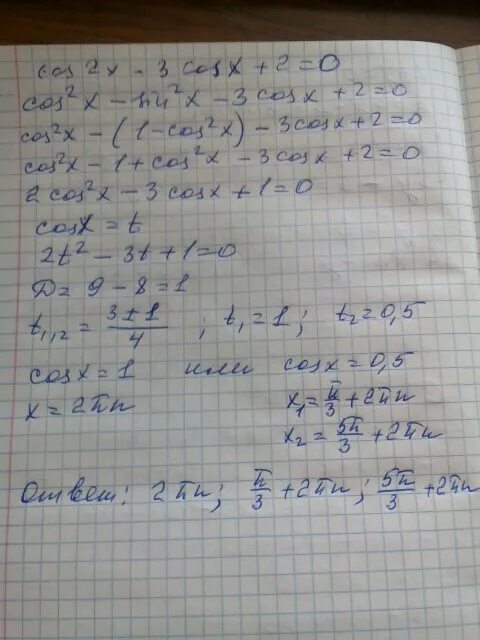 cos2x - 3cosx + 2 = 0
cos²x - sin²x - 3cosx + 2 = 0
cos²x - (1 - cos²x) - 3cosx + 2 = 0
cos²x - 1 + cos²x - 3cosx + 2 = 0
2cos²x - 3cosx + 1 = 0
cosx = t
2t² - 3t + 1 = 0
D = 9 - 8 = 1
t₁,₂ = (3±1)/4 ; t₁ = 1 ; t₂ = 0,5
cosx = 1 или cosx = 0,5
x = 2πn x₁ = π/3 + 2πn
x₂ = 5π/3 + 2πn
Ответ: 2πn; π/3 + 2πn; 5π/3 + 2πn